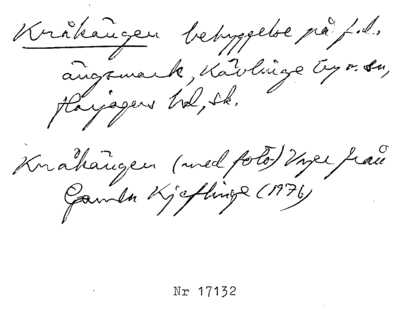 Kråkängen bebyggelse på f.d.
ängsmark, Kävlinge by o. sn,
Harjagers hd, Sk.
Kråkängen (med foto) Unge från
Gamla Kjeflinge (1976)
Nr 17132